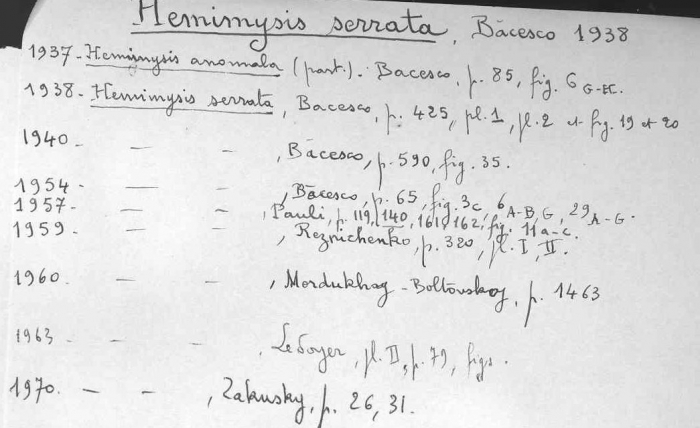 Hemimysis serrata, Băcesco 1938
1937 - Hemimysis anomala (part.). Bacesco, p. 85, fig. 6 G-EC.
1938 - Hemimysis serrata, Bacesco, p. 425, pl. 1, pl. 2 et fig. 19 et 20
1940 - — — , Băcesco, p. 590, fig. 35.
1954 - — — , Băcesco, p. 65, fig. 3c, 6 A-B, G, 29 A-G.
1957 - — — , Pauli, p. 119, 140, 161, 162, fig. 11a-c.
1959 - — — , Reznichenko, p. 320, pl. I, II.
1960 — — , Mordukhaj-Boltovskoj, p. 1463
1963 — — , Ledoyer, pl. II, p. 79, figs.
1970. — — , Zakusky, p. 26, 31.